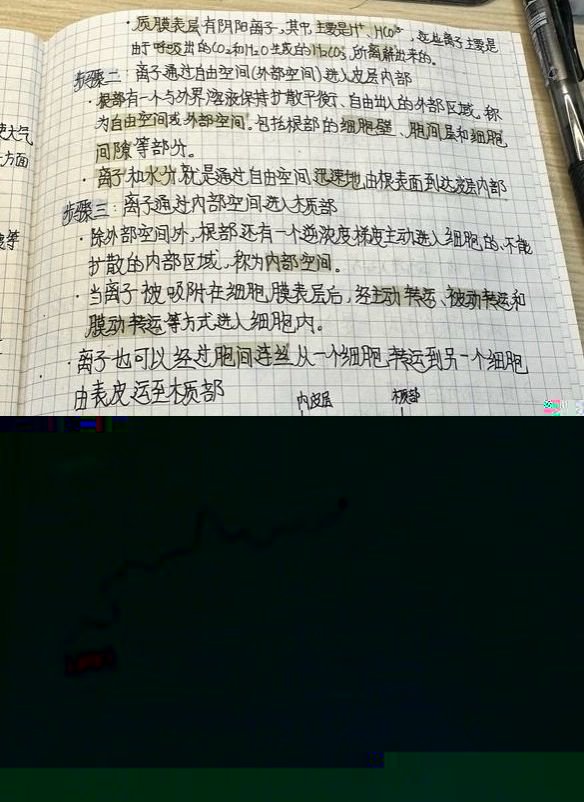 · 质膜表层有阴阳离子,其中主要是H⁺、HCO³⁻,这些离子主要是
由于呼吸出的CO₂和H₂O生成的H₂CO₃所离解出来的。
步骤二:离子通过自由空间(外部空间)进入皮层内部
· 根部有一个与外界溶液保持扩散平衡、自由出入的外部区域,称
为自由空间或外部空间。包括根部的细胞壁、胞间层和细胞
间隙等部分。
· 离子和水分就是通过自由空间迅速地由根表面到达皮层内部
步骤三:离子通过内部空间进入木质部
· 除外部空间外,根部还有一个逆浓度梯度主动进入细胞的、不能
扩散的内部区域,称为内部空间。
· 当离子被吸附在细胞膜表层后,经主动转运、被动转运和
膜动转运等方式进入细胞内。
· 离子也可以经过胞间连丝从一个细胞转运到另一个细胞
由表皮运至木质部
内皮层 木质部
大气
方面
等